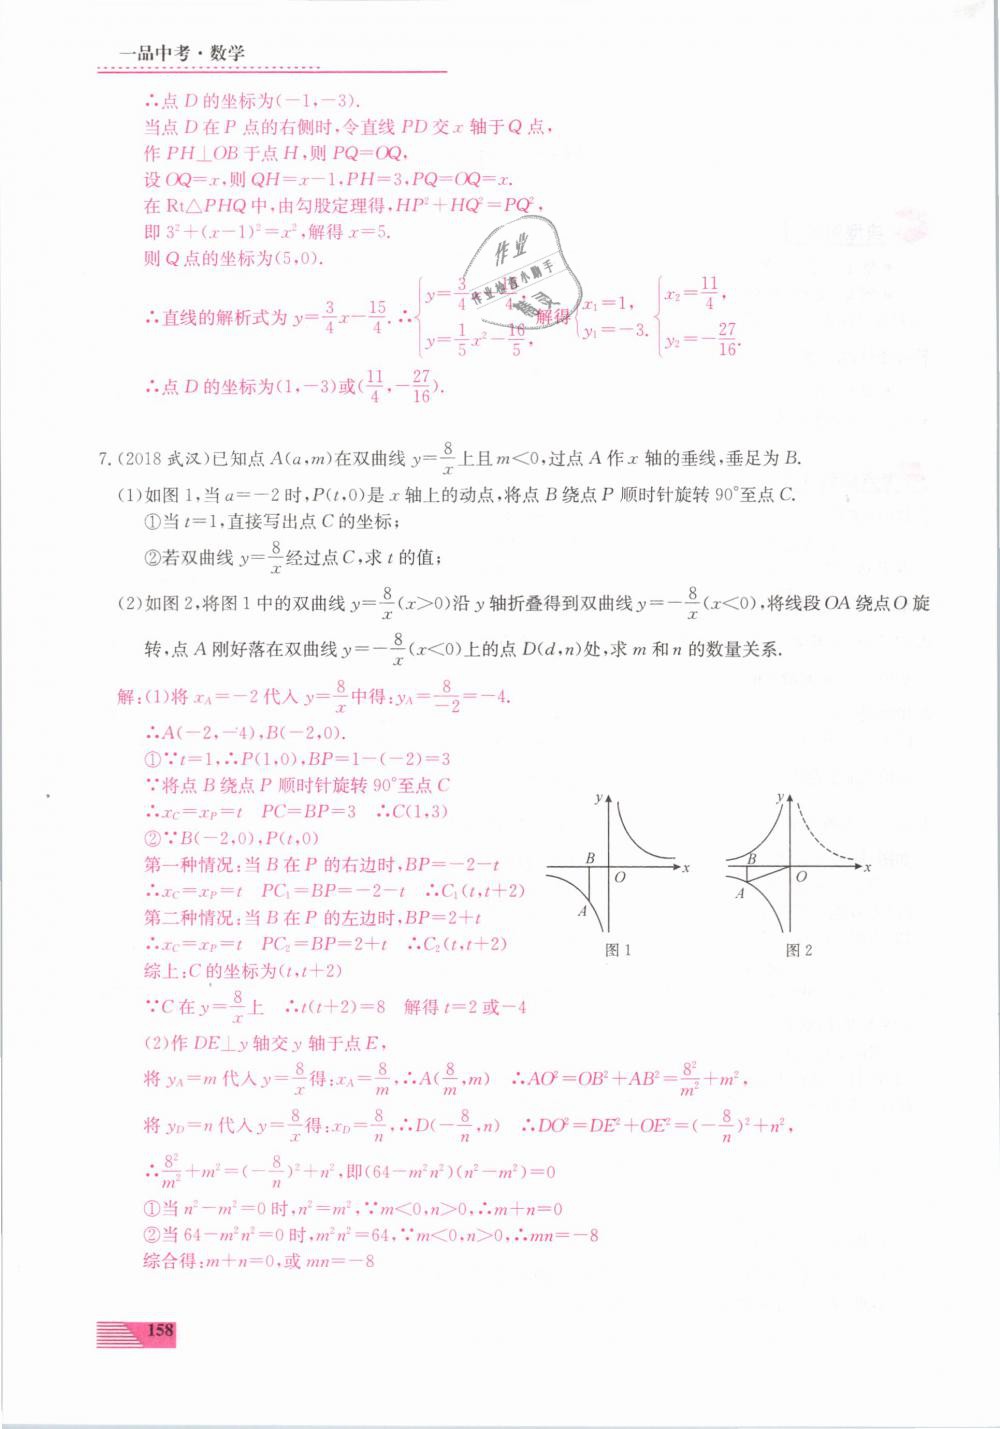 一品中考·数学
∴点 D 的坐标为(-1,-3).
当点 D 在 P 点的右侧时,令直线 PD 交 x 轴于 Q 点,
作 PH⊥OB 于点 H,则 PQ=OQ,
设 OQ=x,则 QH=x-1,PH=3,PQ=OQ=x.
在 Rt△PHQ 中,由勾股定理得,HP²+HQ²=PQ²,
即 3²+(x-1)²=x²,解得 x=5.
则 Q 点的坐标为(5,0).
作业
作业检查小助手
∴直线的解析式为 y=3/4x-15/4.∴{y=3/4 , y=1/5x²-16/5, 解得{x₁=1, y₁=-3. {x₂=11/4, y₂=-27/16.
∴点 D 的坐标为(1,-3)或(11/4,-27/16).
7.(2018 武汉)已知点 A(a,m)在双曲线 y=8/x上且 m<0,过点 A 作 x 轴的垂线,垂足为 B.
(1)如图 1,当 a=-2 时,P(t,0)是 x 轴上的动点,将点 B 绕点 P 顺时针旋转 90°至点 C.
①当 t=1,直接写出点 C 的坐标;
②若双曲线 y=8/x经过点 C,求 t 的值;
(2)如图 2,将图 1 中的双曲线 y=8/x(x>0)沿 y 轴折叠得到双曲线 y=-8/x(x<0),将线段 OA 绕点 O 旋
转,点 A 刚好落在双曲线 y=-8/x(x<0)上的点 D(d,n)处,求 m 和 n 的数量关系.
解:(1)将 xA=-2 代入 y=8/x中得:yA=8/-2=-4.
∴A(-2,-4),B(-2,0).
①∵t=1,∴P(1,0),BP=1-(-2)=3
∵将点 B 绕点 P 顺时针旋转 90°至点 C
∴xC=xP=t PC=BP=3 ∴C(1,3)
②∵B(-2,0),P(t,0)
第一种情况:当 B 在 P 的右边时,BP=-2-t
∴xC=xP=t PC₁=BP=-2-t ∴C₁(t,t+2)
第二种情况:当 B 在 P 的左边时,BP=2+t
∴xC=xP=t PC₂=BP=2+t ∴C₂(t,t+2)
综上:C 的坐标为(t,t+2)
∵C 在 y=8/x上 ∴t(t+2)=8 解得 t=2 或-4
y
B
O
x
A
图 1
y
B
O
x
A
图 2
(2)作 DE⊥y 轴交 y 轴于点 E,
将 yA=m 代入 y=8/x得:xA=8/m,∴A(8/m,m) ∴AO²=OB²+AB²=8²/m²+m²,
将 yD=n 代入 y=8/x得:xD=8/n,∴D(-8/n,n) ∴DO²=DE²+OE²=(-8/n)²+n²,
∴8²/m²+m²=(-8/n)²+n²,即(64-m²n²)(n²-m²)=0
①当 n²-m²=0 时,n²=m²,∵m<0,n>0,∴m+n=0
②当 64-m²n²=0 时,m²n²=64,∵m<0,n>0,∴mn=-8
综合得:m+n=0,或 mn=-8
158